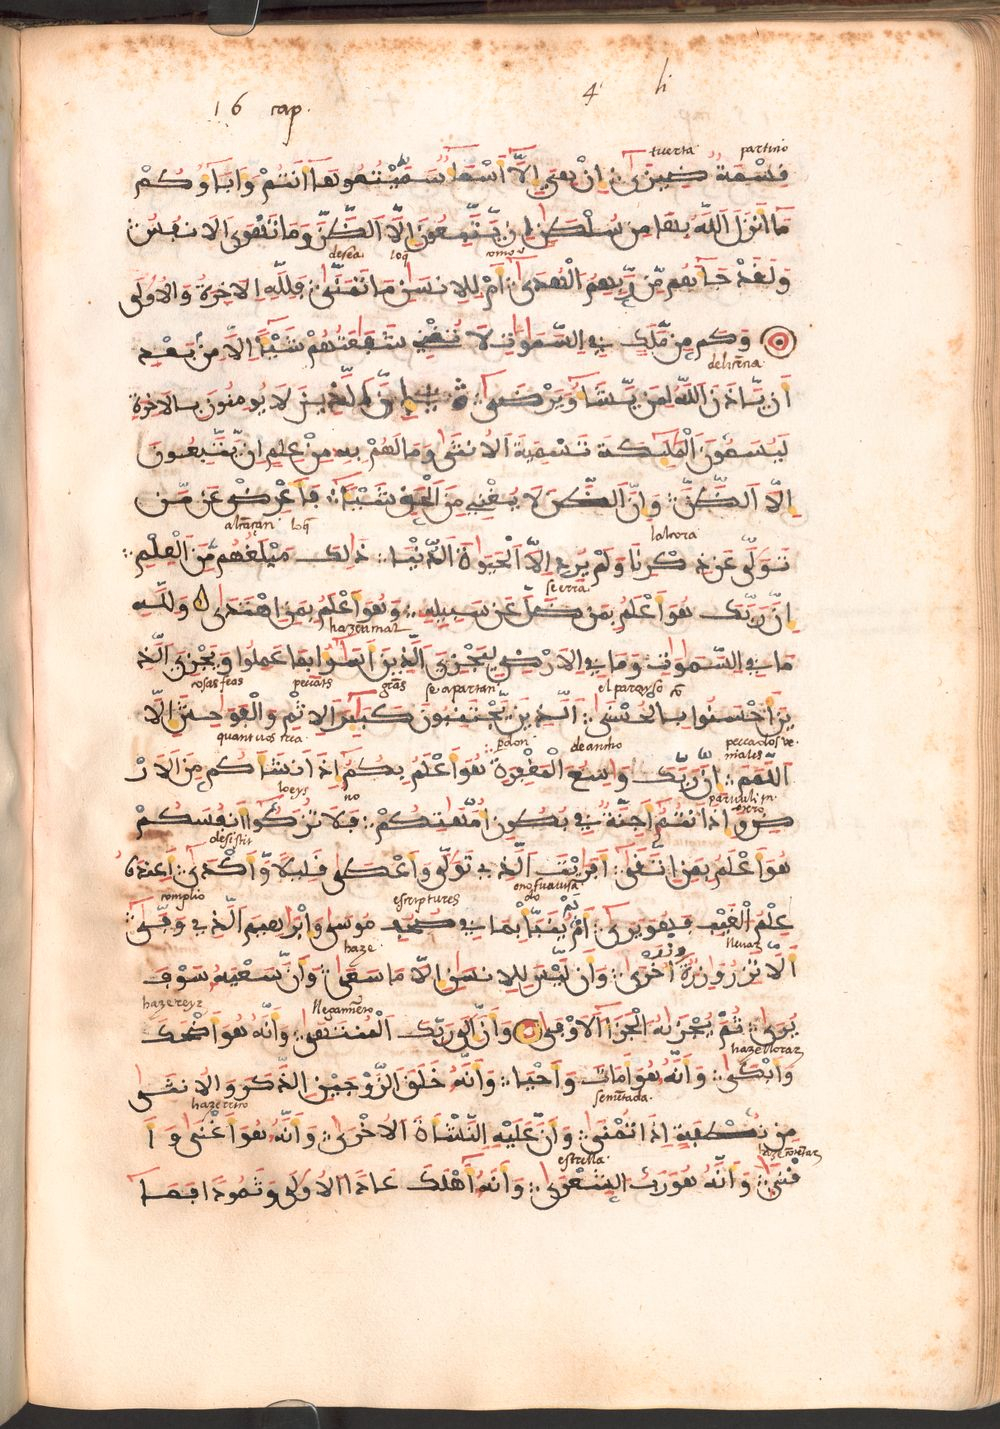 16 cap.
4 li
tuerta partino
قِسْمَةٌ ضِيزَىٰ إِنْ هِيَ إِلَّا أَسْمَاءٌ سَمَّيْتُمُوهَا أَنتُمْ وَءَابَاؤُكُمْ
مَا أَنزَلَ اللَّهُ بِهَا مِن سُلْطَٰنٍ إِن يَتَّبِعُونَ إِلَّا الظَّنَّ وَمَا تَهْوَى الْأَنفُسُ
desea loq como v
وَلَقَدْ جَاءَهُم مِّن رَّبِّهِمُ الْهُدَىٰ أَمْ لِلْإِنسَٰنِ مَا تَمَنَّىٰ فَلِلَّهِ الْآخِرَةُ وَالْأُولَىٰ
وَكَم مِّن مَّلَكٍ فِي السَّمَٰوَٰتِ لَا تُغْنِي شَفَٰعَتُهُمْ شَيْئًا إِلَّا مِن بَعْدِ
أَن يَأْذَنَ اللَّهُ لِمَن يَشَاءُ وَيَرْضَىٰ إِنَّ الَّذِينَ لَا يُؤْمِنُونَ بِالْآخِرَةِ
لَيُسَمُّونَ الْمَلَٰئِكَةَ تَسْمِيَةَ الْأُنثَىٰ وَمَا لَهُم بِهِ مِنْ عِلْمٍ إِن يَتَّبِعُونَ
إِلَّا الظَّنَّ وَإِنَّ الظَّنَّ لَا يُغْنِي مِنَ الْحَقِّ شَيْئًا فَأَعْرِضْ عَن مَّن
alcãçan loq
تَوَلَّىٰ عَن ذِكْرِنَا وَلَمْ يُرِدْ إِلَّا الْحَيَوٰةَ الدُّنْيَا ذَٰلِكَ مَبْلَغُهُم مِّنَ الْعِلْمِ
se erra
إِنَّ رَبَّكَ هُوَ أَعْلَمُ بِمَن ضَلَّ عَن سَبِيلِهِ وَهُوَ أَعْلَمُ بِمَنِ اهْتَدَىٰ وَلِلَّهِ
hazen mal
مَا فِي السَّمَٰوَٰتِ وَمَا فِي الْأَرْضِ لِيَجْزِيَ الَّذِينَ أَسَٰؤُا بِمَا عَمِلُوا وَيَجْزِيَ الَّذِ
cosas feas peccãts grãs se apartan el parayso
ينَ أَحْسَنُوا بِالْحُسْنَى الَّذِينَ يَجْتَنِبُونَ كَبَٰئِرَ الْإِثْمِ وَالْفَوَٰحِشَ إِلَّا
quant vos crea pdon de animo peccados ve
niales
اللَّمَمَ إِنَّ رَبَّكَ وَٰسِعُ الْمَغْفِرَةِ هُوَ أَعْلَمُ بِكُمْ إِذْ أَنشَأَكُم مِّنَ الْأَرْ
loeys no
ضِ وَإِذْ أَنتُمْ أَجِنَّةٌ فِي بُطُونِ أُمَّهَٰتِكُمْ فَلَا تُزَكُّوا أَنفُسَكُمْ
desistir
هُوَ أَعْلَمُ بِمَنِ اتَّقَىٰ أَفَرَءَيْتَ الَّذِي تَوَلَّىٰ وَأَعْطَىٰ قَلِيلًا وَأَكْدَىٰ أَعِندَهُ
complio escriptures
عِلْمُ الْغَيْبِ فَهُوَ يَرَىٰ أَمْ لَمْ يُنَبَّأْ بِمَا فِي صُحُفِ مُوسَىٰ وَإِبْرَٰهِيمَ الَّذِي وَفَّىٰ
haze lleuar
أَلَّا تَزِرُ وَازِرَةٌ وِزْرَ أُخْرَىٰ وَأَن لَّيْسَ لِلْإِنسَٰنِ إِلَّا مَا سَعَىٰ وَأَنَّ سَعْيَهُ سَوْفَ
haze reyr llegamiẽto
يُرَىٰ ثُمَّ يُجْزَىٰهُ الْجَزَاءَ الْأَوْفَىٰ وَأَنَّ إِلَىٰ رَبِّكَ الْمُنتَهَىٰ وَأَنَّهُ هُوَ أَضْحَكَ
haze llorar
وَأَبْكَىٰ وَأَنَّهُ هُوَ أَمَاتَ وَأَحْيَا وَأَنَّهُ خَلَقَ الزَّوْجَيْنِ الذَّكَرَ وَالْأُنثَىٰ
haze rrico semẽtada
مِن نُّطْفَةٍ إِذَا تُمْنَىٰ وَأَنَّ عَلَيْهِ النَّشْأَةَ الْأُخْرَىٰ وَأَنَّهُ هُوَ أَغْنَىٰ وَأَ
estrella
قْنَىٰ وَأَنَّهُ هُوَ رَبُّ الشِّعْرَىٰ وَأَنَّهُ أَهْلَكَ عَادًا الْأُولَىٰ وَثَمُودًا فَمَا